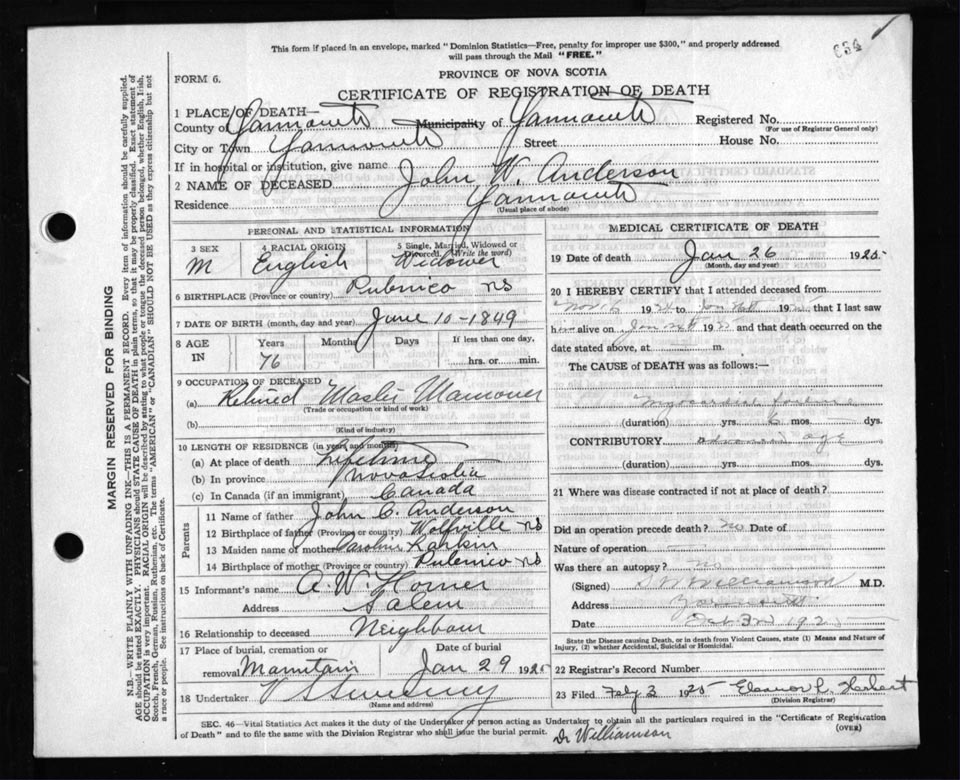 This form if placed in an envelope, marked "Dominion Statistics—Free, penalty for improper use $300," and properly addressed
will pass through the Mail "FREE."
FORM 6.
PROVINCE OF NOVA SCOTIA
CERTIFICATE OF REGISTRATION OF DEATH
1 PLACE OF DEATH—
County of Yarmouth Municipality of Yarmouth Registered No.
(For use of Registrar General only)
City or Town Yarmouth Street House No.
If in hospital or institution, give name
2 NAME OF DECEASED John W. Anderson
Residence Yarmouth
(Usual place of abode)
PERSONAL AND STATISTICAL INFORMATION
3 SEX 4 RACIAL ORIGIN 5 Single, Married, Widowed or Divorced. (Write the word)
M English Widower
6 BIRTHPLACE (Province or country) Pubnico NS
7 DATE OF BIRTH (month, day and year) June 10-1849
8 AGE IN Years Months Days If less than one day,
76 hrs. or min.
9 OCCUPATION OF DECEASED
(a) Retired Master Mariner
(Trade or occupation or kind of work)
(b)
(Kind of industry)
10 LENGTH OF RESIDENCE (in years and months)
(a) At place of death lifetime
(b) In province Nova Scotia
(c) In Canada (if an immigrant) Canada
Parents
11 Name of father John C. Anderson
12 Birthplace of father (Province or country) Wolfville NS
13 Maiden name of mother Caroline Larkin
14 Birthplace of mother (Province or country) Pubnico NS
15 Informant's name A. W. Horner
Address Salem
16 Relationship to deceased Neighbour
17 Place of burial, cremation or removal Date of burial
Mountain Jan 29 1925
18 Undertaker V S Sweeny
(Name and address)
MEDICAL CERTIFICATE OF DEATH
19 Date of death Jan 26 1925
(Month, day and year)
20 I HEREBY CERTIFY that I attended deceased from
192 to 192 that I last saw
h alive on 192 and that death occurred on the
date stated above, at m.
The CAUSE OF DEATH was as follows:—
Myocardial
(duration) yrs. 6 mos. dys.
CONTRIBUTORY advanced age
(duration) yrs. mos. dys.
21 Where was disease contracted if not at place of death?
Did an operation precede death? no Date of
Nature of operation
Was there an autopsy? no
(Signed) Williamson M.D.
Address Yarmouth
Date
State the Disease causing Death, or in death from Violent Causes, state (1) Means and Nature of
Injury, (2) whether Accidental, Suicidal or Homicidal.
22 Registrar's Record Number
23 Filed Feby 3 1925 Eleanor L. Harbert
(Division Registrar)
SEC. 46—Vital Statistics Act makes it the duty of the Undertaker or person acting as Undertaker to obtain all the particulars required in the "Certificate of Registration
of Death" and to file the same with the Division Registrar who shall issue the burial permit.
(OVER)
Dr Williamson
MARGIN RESERVED FOR BINDING
N.B.—WRITE PLAINLY WITH UNFADING INK—THIS IS A PERMANENT RECORD. Every item of information should be carefully supplied.
AGE should be stated EXACTLY. PHYSICIANS should STATE CAUSE OF DEATH in plain terms, so that it may be properly classified. Exact statement of
OCCUPATION is very important. RACIAL ORIGIN will be described by stating to what people or tongue the deceased person belonged, whether English, Irish,
Scotch, French, German, Russian, Ruthenian, etc. The terms "AMERICAN" or "CANADIAN" SHOULD NOT BE USED as they express citizenship but not
a race or people. See instructions on back of Certificate.